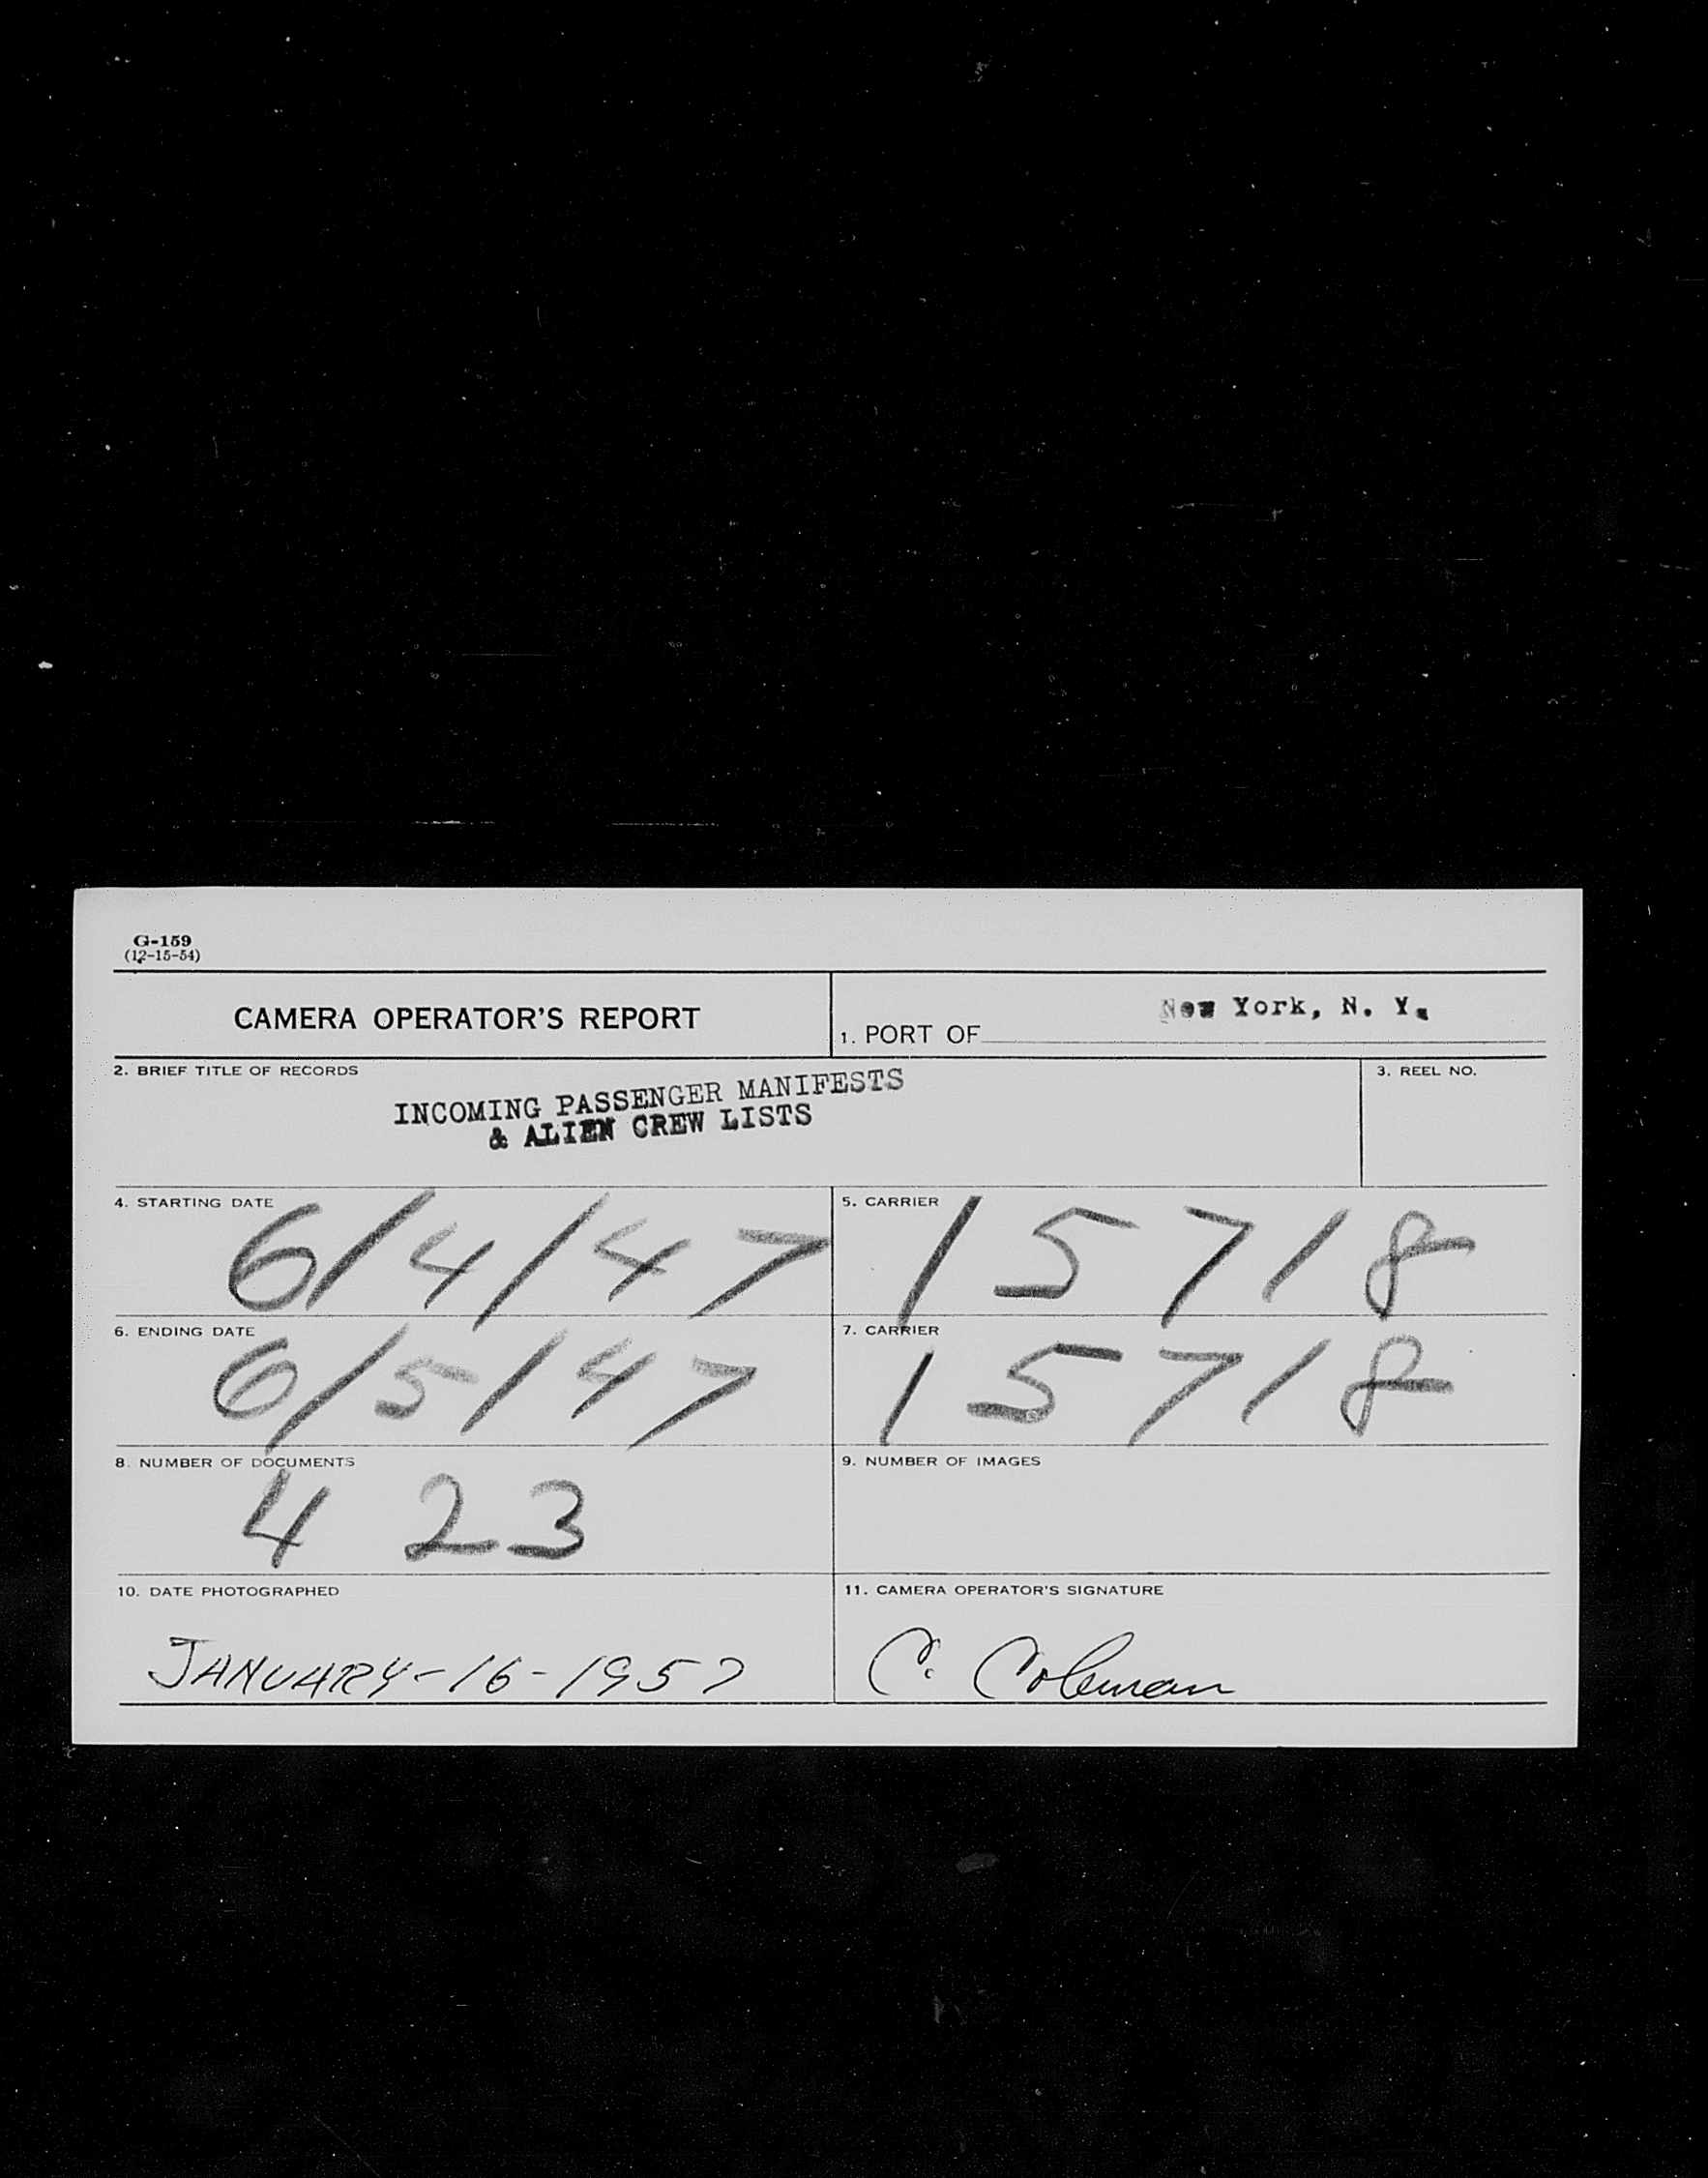 G-159
(12-15-54)
CAMERA OPERATOR'S REPORT
1. PORT OF New York, N. Y.
2. BRIEF TITLE OF RECORDS
INCOMING PASSENGER MANIFESTS
& ALIEN CREW LISTS
3. REEL NO.
4. STARTING DATE
6/4/47
5. CARRIER
15718
6. ENDING DATE
6/5/47
7. CARRIER
15718
8. NUMBER OF DOCUMENTS
423
9. NUMBER OF IMAGES
10. DATE PHOTOGRAPHED
JANUARY-16-1957
11. CAMERA OPERATOR'S SIGNATURE
C. Coleman